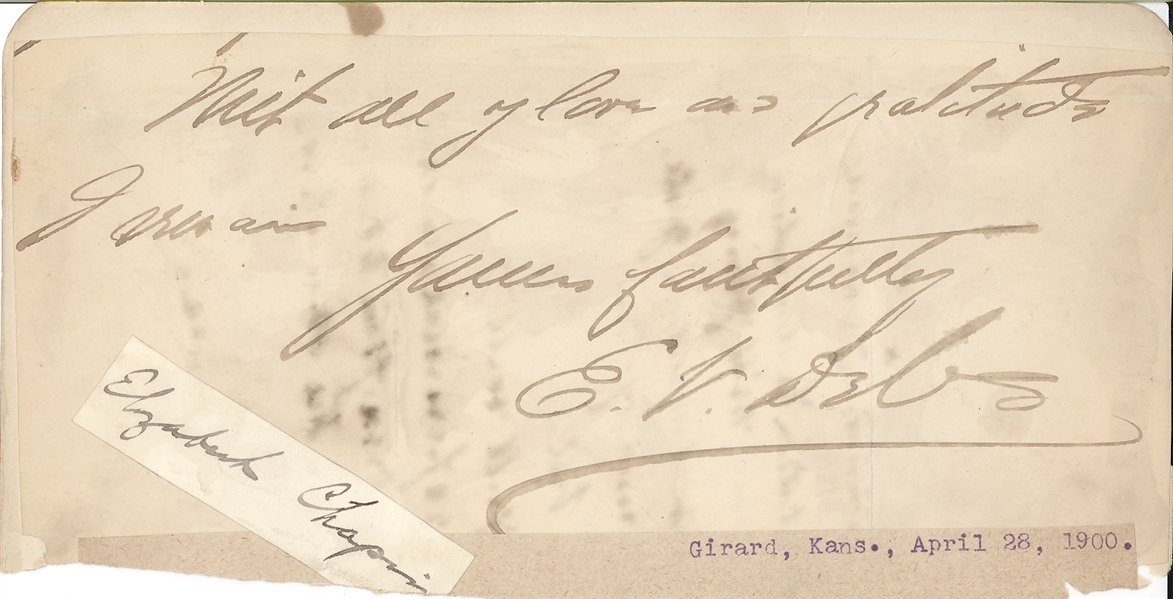 With all of love and gratitude
I remain
Yours faithfully
E. V. Debs
Elizabeth Chapin
Girard, Kans., April 28, 1900.